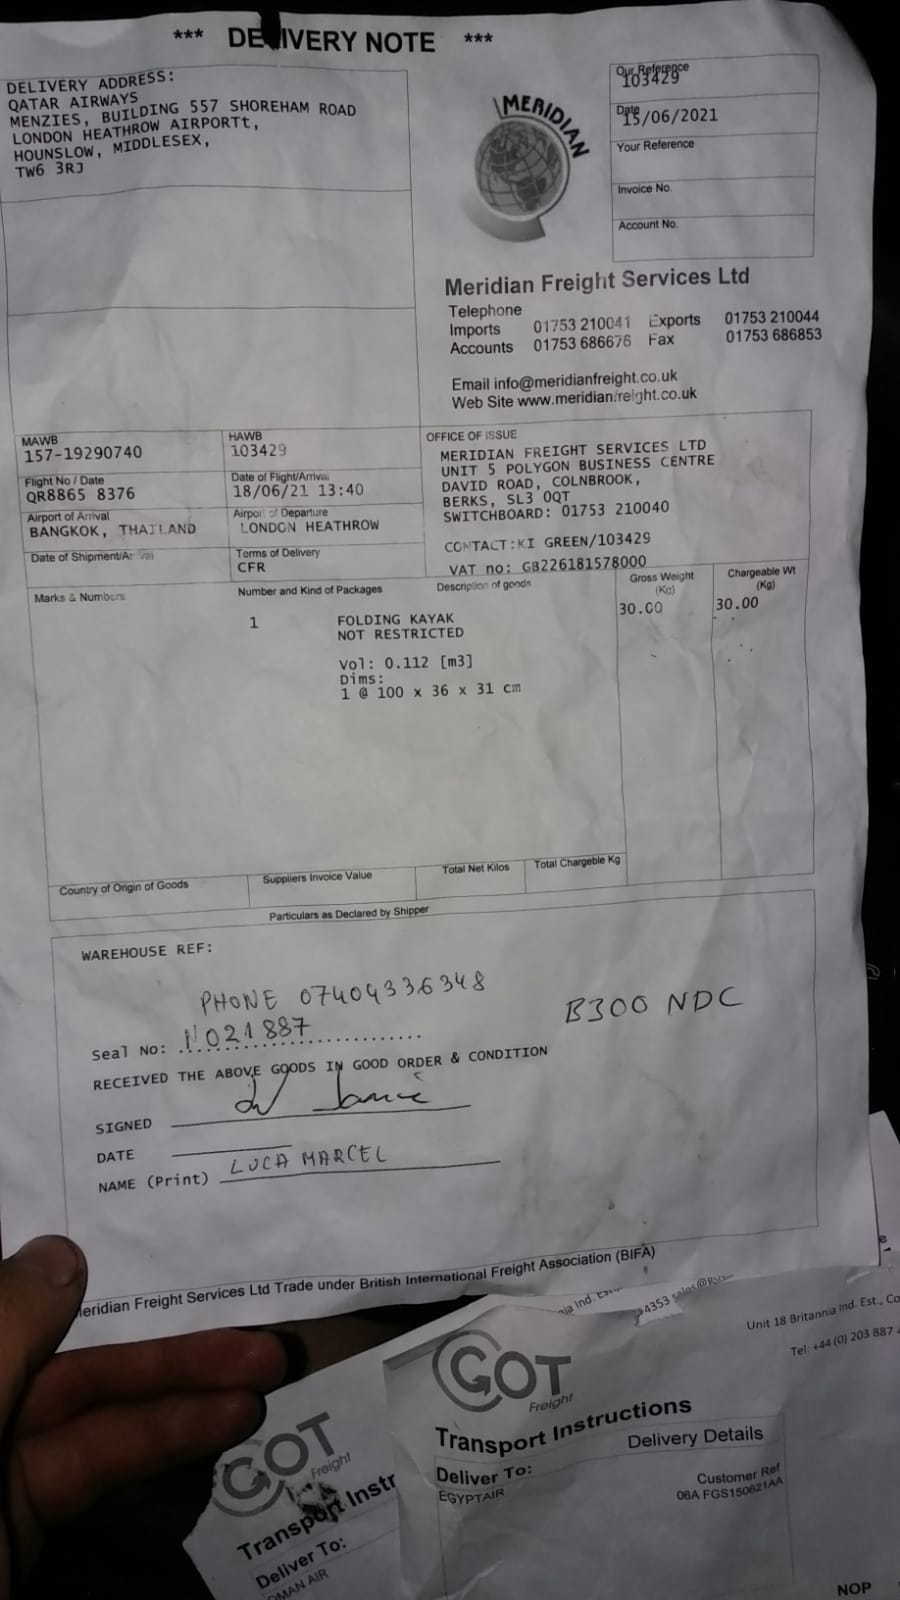 *** DELIVERY NOTE ***
DELIVERY ADDRESS:
QATAR AIRWAYS
MENZIES, BUILDING 557 SHOREHAM ROAD
LONDON HEATHROW AIRPORTt,
HOUNSLOW, MIDDLESEX,
TW6 3RJ
MERIDIAN
Our Reference
103429
Date
15/06/2021
Your Reference
Invoice No.
Account No.
Meridian Freight Services Ltd
Telephone
Imports 01753 210041 Exports 01753 210044
Accounts 01753 686676 Fax 01753 686853
Email info@meridianfreight.co.uk
Web Site www.meridianfreight.co.uk
MAWB
157-19290740
HAWB
103429
Flight No / Date
QR8865 8376
Date of Flight/Arrival
18/06/21 13:40
Airport of Arrival
BANGKOK, THAILAND
Airport of Departure
LONDON HEATHROW
Date of Shipment/Arrival
Terms of Delivery
CFR
OFFICE OF ISSUE
MERIDIAN FREIGHT SERVICES LTD
UNIT 5 POLYGON BUSINESS CENTRE
DAVID ROAD, COLNBROOK,
BERKS, SL3 0QT
SWITCHBOARD: 01753 210040
CONTACT:KI GREEN/103429
VAT no: GB226181578000
Marks & Numbers
Number and Kind of Packages
Description of goods
Gross Weight
(Kg)
Chargeable Wt
(Kg)
1 FOLDING KAYAK 30.00 30.00
NOT RESTRICTED
Vol: 0.112 [m3]
Dims:
1 @ 100 x 36 x 31 cm
Country of Origin of Goods
Suppliers Invoice Value
Total Net Kilos
Total Chargeble Kg
Particulars as Declared by Shipper
WAREHOUSE REF:
PHONE 07404336348
B300 NDC
Seal No: N021887
RECEIVED THE ABOVE GOODS IN GOOD ORDER & CONDITION
SIGNED
DATE
NAME (Print) LUCA MARCEL
eridian Freight Services Ltd Trade under British International Freight Association (BIFA)
Unit 18 Britannia Ind. Est., Co
Tel: +44 (0) 203 887
GOT
Freight
Transport Instructions
Delivery Details
Deliver To:
EGYPTAIR
Customer Ref
06A FGS150621AA
NOP
GOT
Freight
Transport Instr
Deliver To:
OMAN AIR